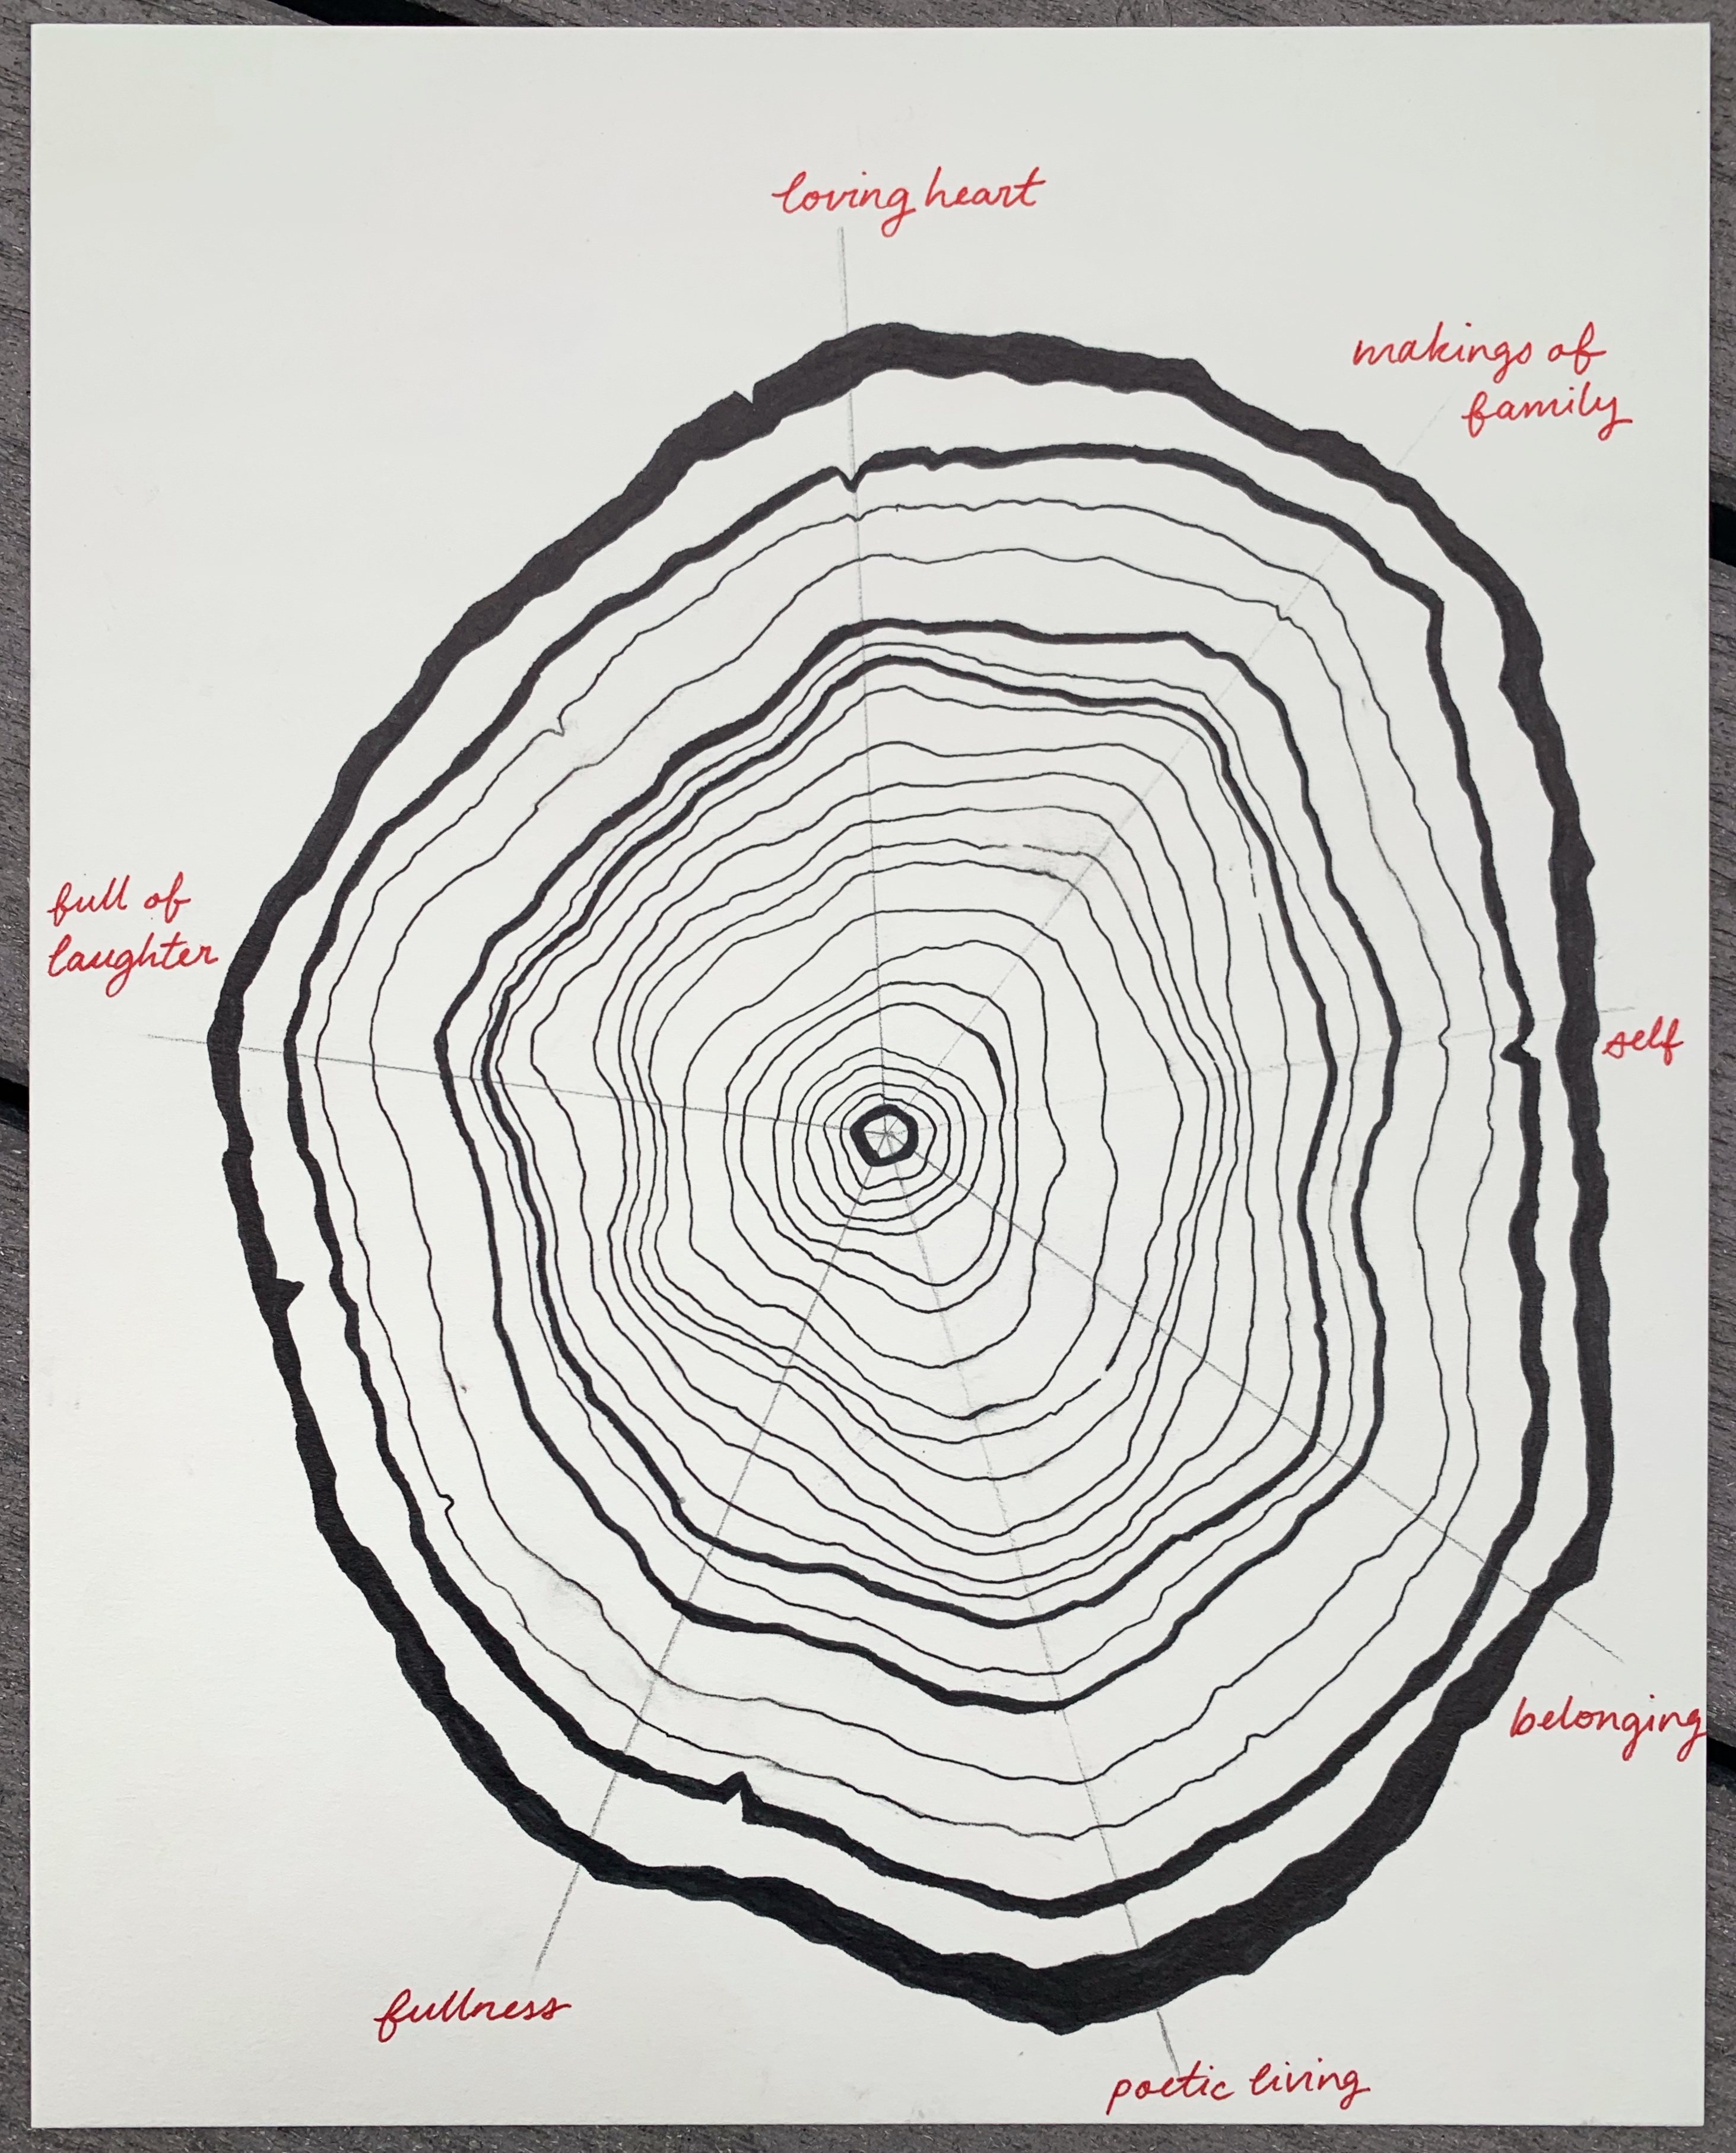 loving heart
makings of
family
full of
laughter
self
belonging
fullness
poetic living